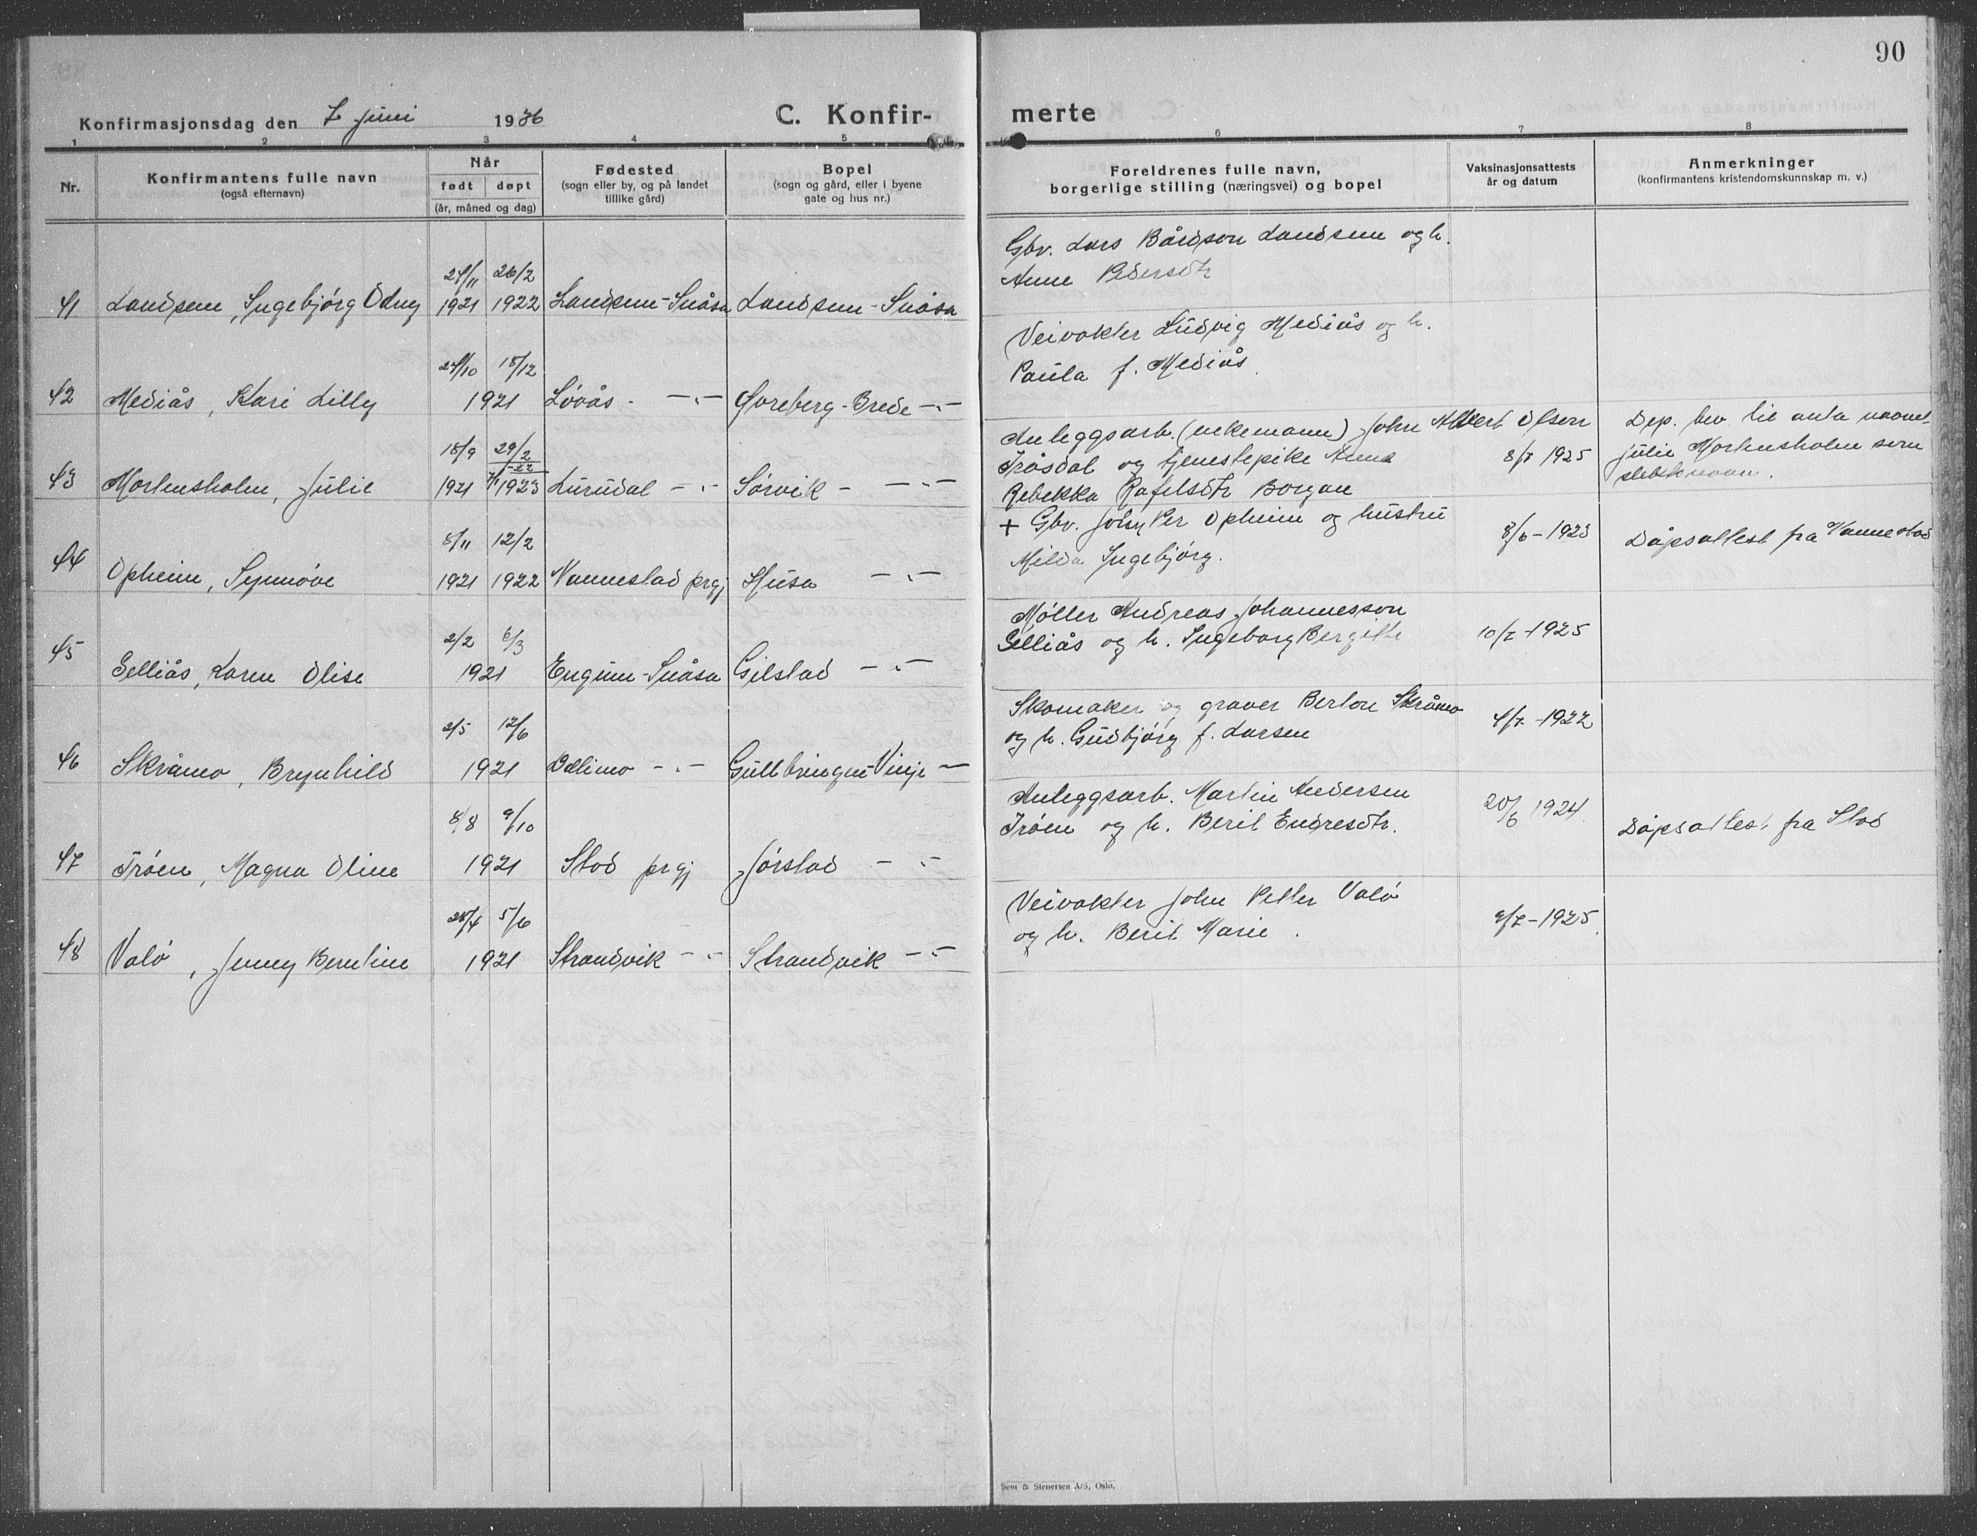 90
Konfirmasjonsdag den 7 juni 1936
C. Konfir-
merte
1 2 3 4 5 6 7 8
Nr.
Konfirmantens fulle navn
(også efternavn)
Når
født døpt
(år, måned og dag)
Fødested
(sogn eller by, og på landet
tillike gård)
Bopel
(sogn og gård, eller i byene
gate og hus nr.)
Foreldrenes fulle navn,
borgerlige stilling (næringsvei) og bopel
Vaksinasjonsattests
år og datum
Anmerkninger
(konfirmantens kristendomskunnskap m. v.)
Gbv. Lars Bårdson Landsem og h.
Anne Pedersdtr
26/2
41 Landsem, Ingebjørg Odny 1921 1922 Landsem-Snåsa Landsem-Snåsa
Veivokter Ludvig Mediås og h.
Paula f. Mediås.
15/12
42 Mediås, Kari Lilly 1921 Løvås - — " — Øvreberg-Brede — " —
Anleggsarb. (enkemann) John Albert Olsen
Trøsdal og tjenestepike Anna
Rebekka Rafelsdtr Borgan
8/7 1925
Dep. bev til anta navnet
Julie Mortensholm som
slektsnavn.
18/9 29/2
-22
43 Mortensholm, Julie 1921 7/1 1923 Lurudal — " — Sørvik - — " —
+ Gbv. Per Opheim og hustru
Milda Ingebjørg.
8/6 - 1923
Dåpsattest fra Vannestad
8/11 12/2
44 Opheim, Synnøve 1921 1922 Vannestad prgj Husa — " —
Møller Andreas Johannesson
Selliås og h. Ingeborg Bergitte
10/7 - 1925
2/2 6/3
45 Selliås, Karen Olise 1921 Engum-Snåsa Gilstad — " —
Skomaker og graver Berton Skråmo
og h. Gudbjørg f. Larsen
4/7 - 1922
2/5 12/6
46 Skråmo, Brynhild 1921 Dælimo — " — Gullbringen-Vinje —
Anleggsarb. Martin Andersen
Trøen og h. Beril Endresdtr.
20/6 1924.
Dåpsattest fra Stod
8/8 9/10
47 Trøen, Magna Oline 1921 Stod prgj Jørstad — " —
Veivokter John Petter Valø
og h. Berit Marie.
9/7 - 1925.
25/4 5/6
48 Valø, Jenny Berntine 1921 Strandvik — " — Strandvik — " —
Sem & Stenersen A/S, Oslo.